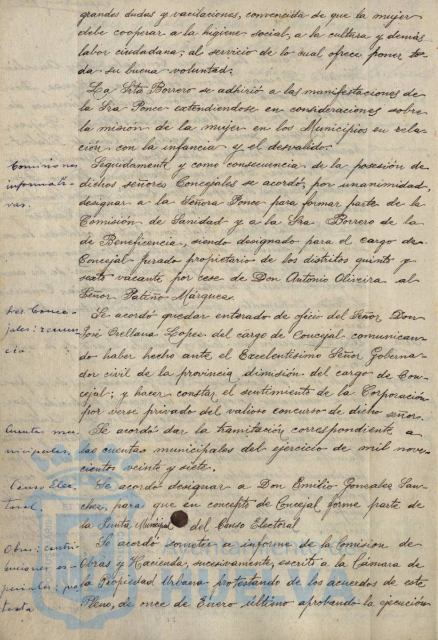 grandes dudas y vacilaciones, convencida de que la mujer
debe cooperar a la higiene social, a la cultura y demás
labor ciudadana; al servicio de lo cual ofrece poner to-
da su buena voluntad.
La Srta Borrero se adhirió a las manifestaciones de
la Sra Ponce extendiendose en consideraciones sobre
la mision de la mujer en los Municipios en rela-
ción con la infancia y el desvalido.
Comisiones
informati-
vas.
Seguidamente y como consecuencia de la posesión de
dichos señores Concejales se acordó, por unanimidad,
designar a la Señora Ponce para formar parte de la
Comisión de Sanidad y a la Sra Borrero de la
de Beneficencia, siendo designado para el cargo de
Concejal jurado propietario de los distritos quinto y
sexto vacante por cese de Don Antonio Oliveira al
Señor Patiño Márquez.
Conce-
jales: renun-
cia
Se acordó quedar enterado de oficio del Señor Don
José Orellana Lopez del cargo de Concejal comunican-
do haber hecho ante el Excelentísimo Señor Goberna-
dor civil de la provincia dimisión del cargo de Con-
cejal; y hacer constar el sentimiento de la Corporación
por verse privado del valioso concurso de dicho señor.
Cuentas mu-
nicipales.
Se acordó dar la tramitación correspondiente a
las cuentas municipales del ejercicio de mil nove-
cientos veinte y siete.
Censo Elec-
toral.
Se acordó designar a Don Emilio Gonzalez San-
chez, para que en concepto de Concejal forme parte de
la Junta Municipal del Censo Electoral
Obras: contri-
buciones es-
peciales: pro-
testa
Se acordó someter a informe de la Comision de
Obras y Hacienda, sucesivamente, escrito a la Cámara de
la Propiedad Urbana protestando de los acuerdos de este
Pleno, de once de Enero último aprobando la ejecución
HUELVA